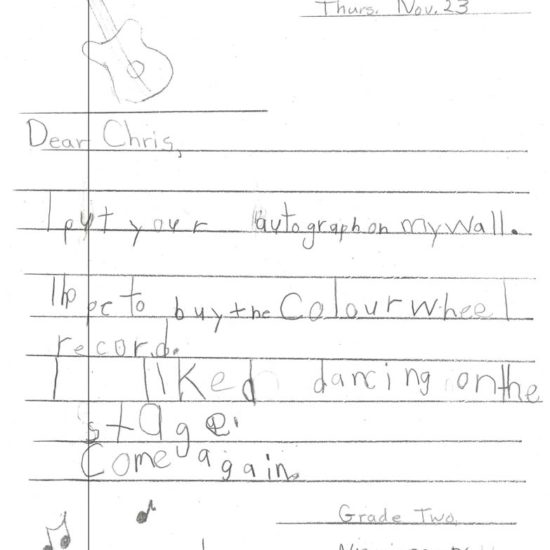 Thurs. Nov. 23
Dear Chris,
I put your autograph on my wall.
I hope to buy the Colour wheel
record.
I liked dancing on the
stage.
Come again.
Grade Two